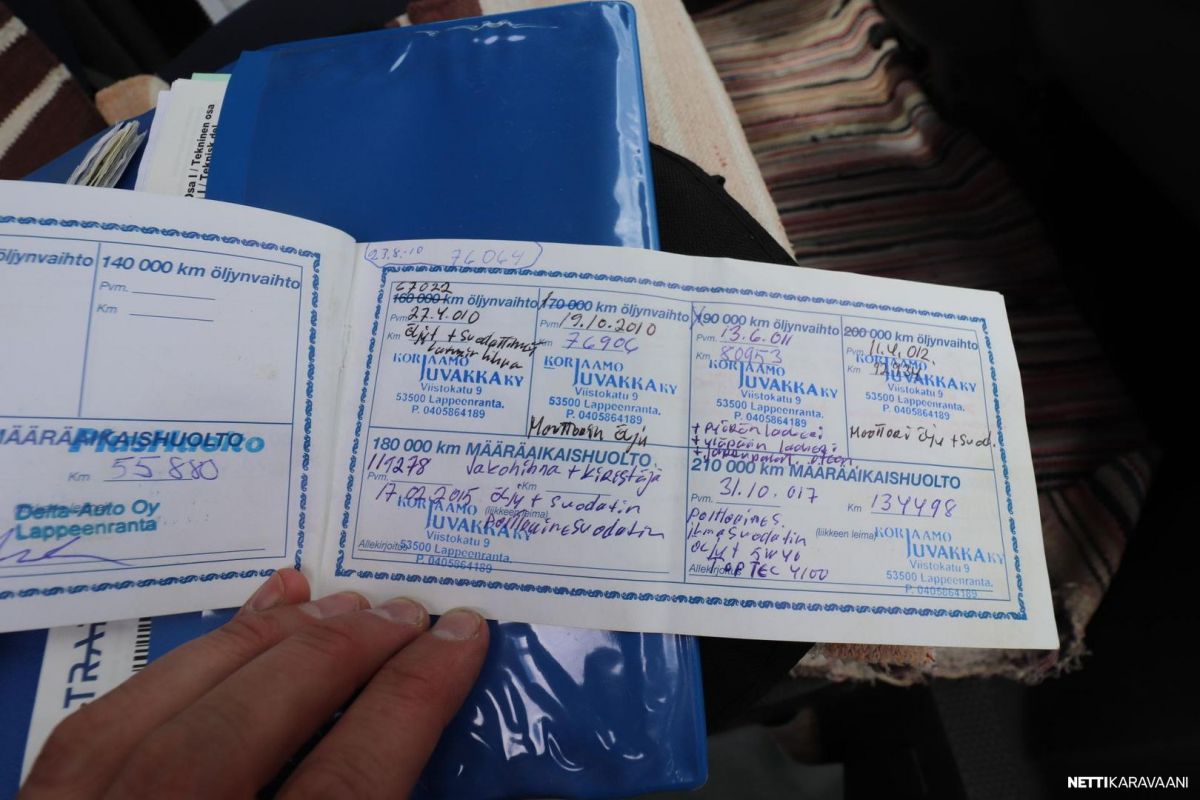 Osa I / Tekninen osa
öljynvaihto
140 000 km öljynvaihto
Pvm.
Km
MÄÄRÄAIKAISHUOLTO
PlusHuolto
Km 55.880
Delta-Auto Oy
Lappeenranta
23.8.-10 76064
67022
160 000 km öljynvaihto
Pvm 27.4.010
Km Öljyt + Suodattimet
KORJAAMO
JUVAKKA KY
Viistokatu 9
53500 Lappeenranta.
P. 0405864189
170 000 km öljynvaihto
Pvm 19.10.2010
Km 76906
KORJAAMO
JUVAKKA KY
Viistokatu 9
53500 Lappeenranta.
P. 0405864189
Moottorin öljy
190 000 km öljynvaihto
Pvm 13.6.011
Km 80953
KORJAAMO
JUVAKKA KY
Viistokatu 9
53500 Lappeenranta.
P. 0405864189
200 000 km öljynvaihto
11.4.012.
Km
KORJAAMO
JUVAKKA KY
Viistokatu 9
53500 Lappeenranta.
P. 0405864189
Moottori öljy + Suod.
180 000 km MÄÄRÄAIKAISHUOLTO
111278 Jakohihna + kiristäjä
Pvm. Km
17.02.2015 Öljyt Suodatin
(liikkeen leima)
polttoainesuodatin
KORJAAMO
JUVAKKA KY
Viistokatu 9
Allekirjoitus 53500 Lappeenranta.
P. 0405864189
210 000 km MÄÄRÄAIKAISHUOLTO
Pvm. 31.10.017 Km 134498
polttoaines.
ilmasuodatin (liikkeen leima)
öljyt 5W40
TEC 4100
Allekirjoitus
KORJAAMO
JUVAKKA KY
Viistokatu 9
53500 Lappeenranta.
P. 0405864189
TRA
NETTIKARAVAANI